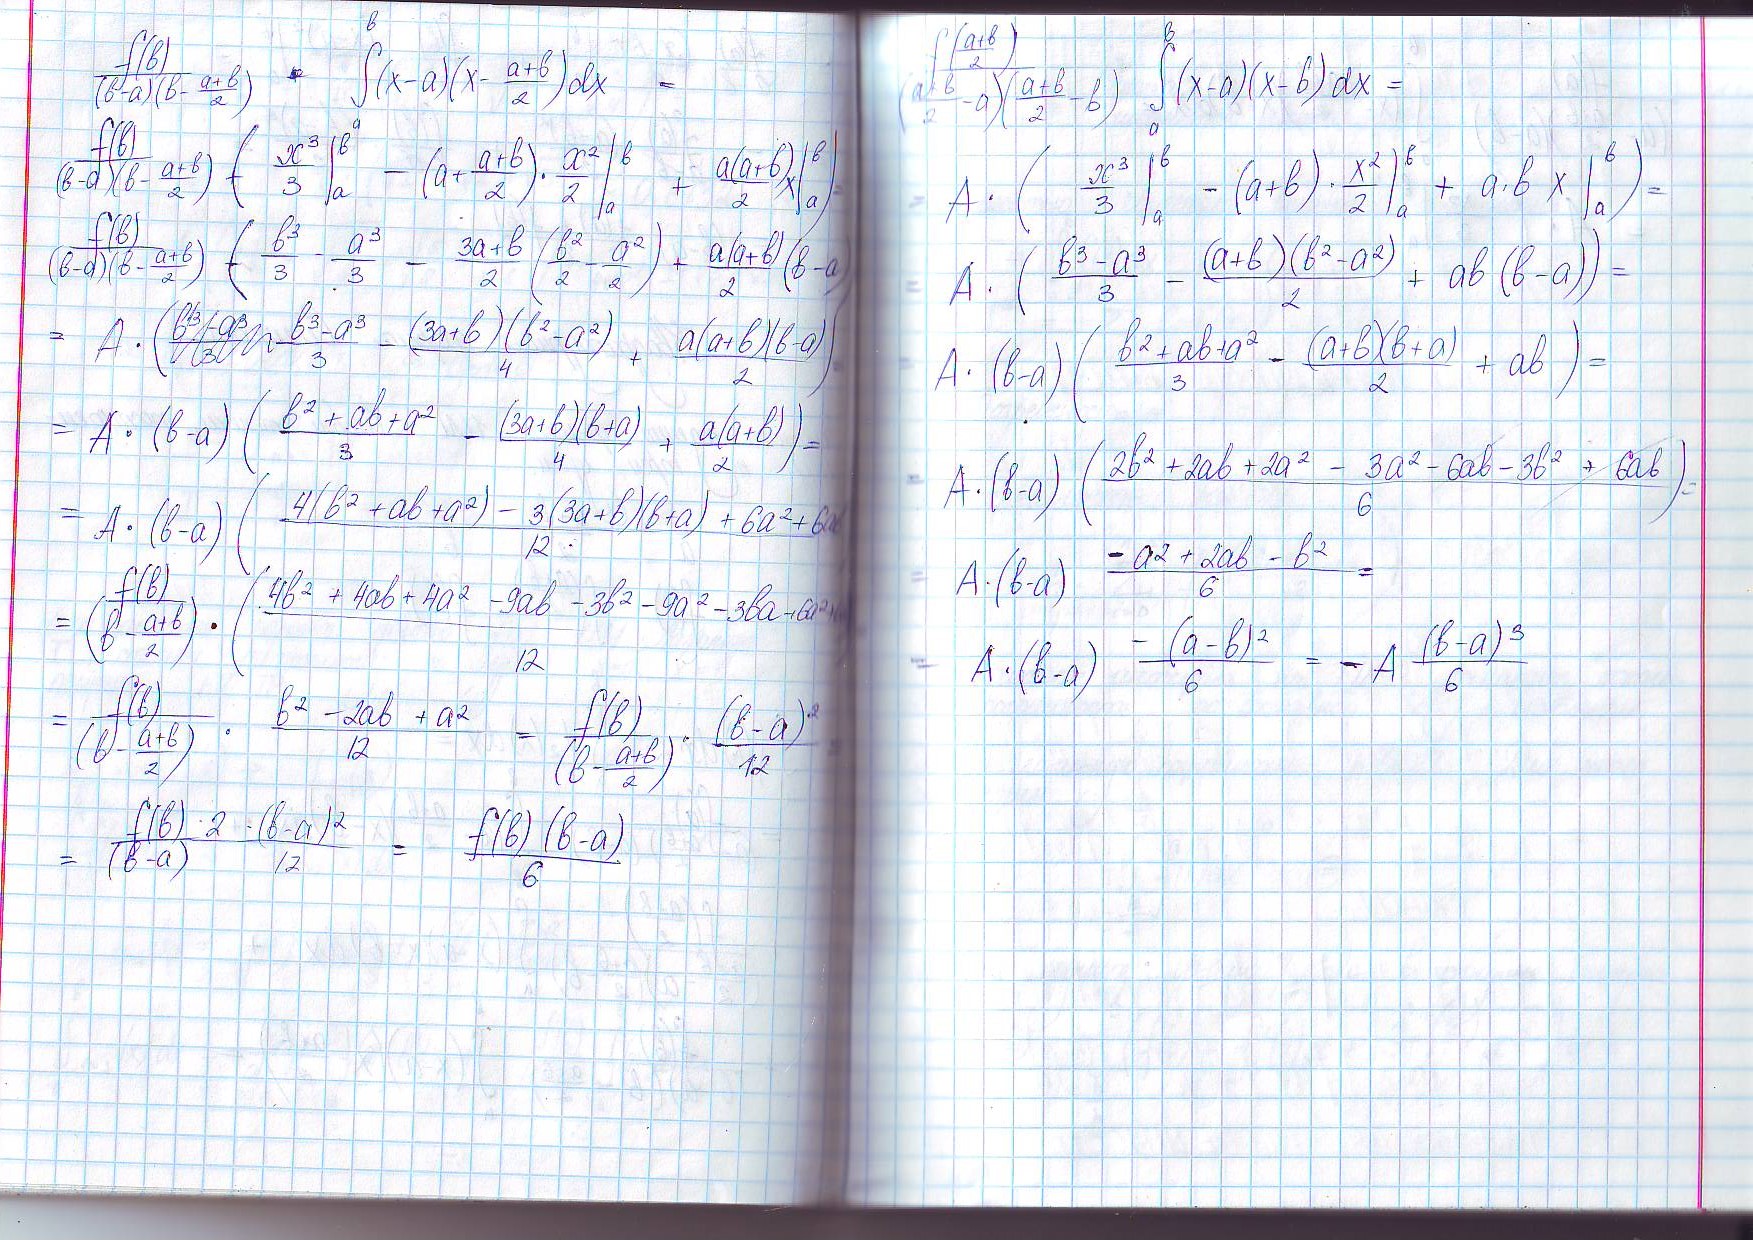 f(b)/((b-a)(b-(a+b)/2)) · ∫_a^b (x-a)(x-(a+b)/2)dx =
f(b)/((b-a)(b-(a+b)/2)) · (x³/3|_a^b - (a+(a+b)/2)·x²/2|_a^b + a(a+b)/2 x|_a^b) =
f(b)/((b-a)(b-(a+b)/2)) · (b³/3 - a³/3 - (3a+b)/2 (b²/2 - a²/2) + a(a+b)/2 (b-a)
= A·( (b³-a³)/3 - (3a+b)(b²-a²)/4 + a(a+b)(b-a)/2 ) =
= A·(b-a) ( (b²+ab+a²)/3 - (3a+b)(b+a)/4 + a(a+b)/2 ) =
= A·(b-a) ( (4(b²+ab+a²) - 3(3a+b)(b+a) + 6a²+6a)/12
= f(b)/(b-(a+b)/2) · ( (4b²+4ab+4a²-9ab-3b²-9a²-3ba+6a²+)/12
= f(b)/(b-(a+b)/2) · (b²-2ab+a²)/12 = f(b)/(b-(a+b)/2) · (b-a)²/12 =
= f(b)·2/(b-a) · (b-a)²/12 = f(b)(b-a)/6
f((a+b)/2)/(((a+b)/2-a)((a+b)/2-b)) ∫_a^b (x-a)(x-b)dx =
= A·( x³/3|_a^b - (a+b)·x²/2|_a^b + a·b x|_a^b ) =
= A·( (b³-a³)/3 - (a+b)(b²-a²)/2 + ab(b-a) ) =
A·(b-a) ( (b²+ab+a²)/3 - (a+b)(b+a)/2 + ab ) =
= A·(b-a) ( (2b²+2ab+2a² - 3a²-6ab-3b² + 6ab)/6 ) =
= A·(b-a) (-a²+2ab-b²)/6 =
= A·(b-a) -(a-b)²/6 = -A (b-a)³/6